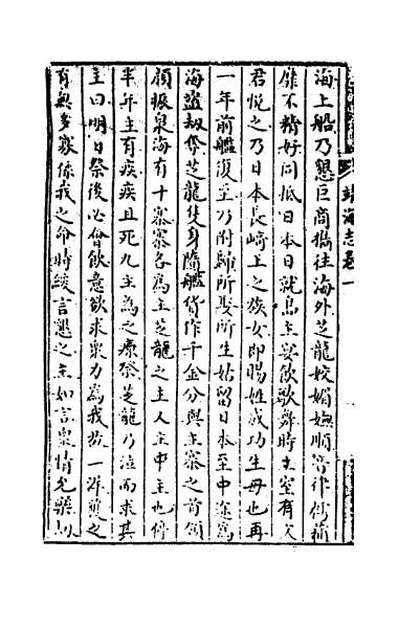 靖海志卷一
海上船乃懇巨商攜往海外芝龍姣媚嫵順音律樗蒲
靡不精好同抵日本日就島主宴飲歌舞時主室有文
君悅之乃日本長崎上之族女即賜姓成功生母也再
一年前艦復至乃附歸所娶所生姑留日本至中途為
海盜劫奪芝龍隻身隨艦貨作千金分與主寨之首領
頗振泉海有十寨寨各為主芝龍之主人主中主也停
半年主有疾疾且死九主為之療祭芝龍乃泣而求其
主曰明日祭後必會飲意欲求眾力為我放一洋獲之
有無多寡係我之命時緩言懇之主如言眾情允樂劫